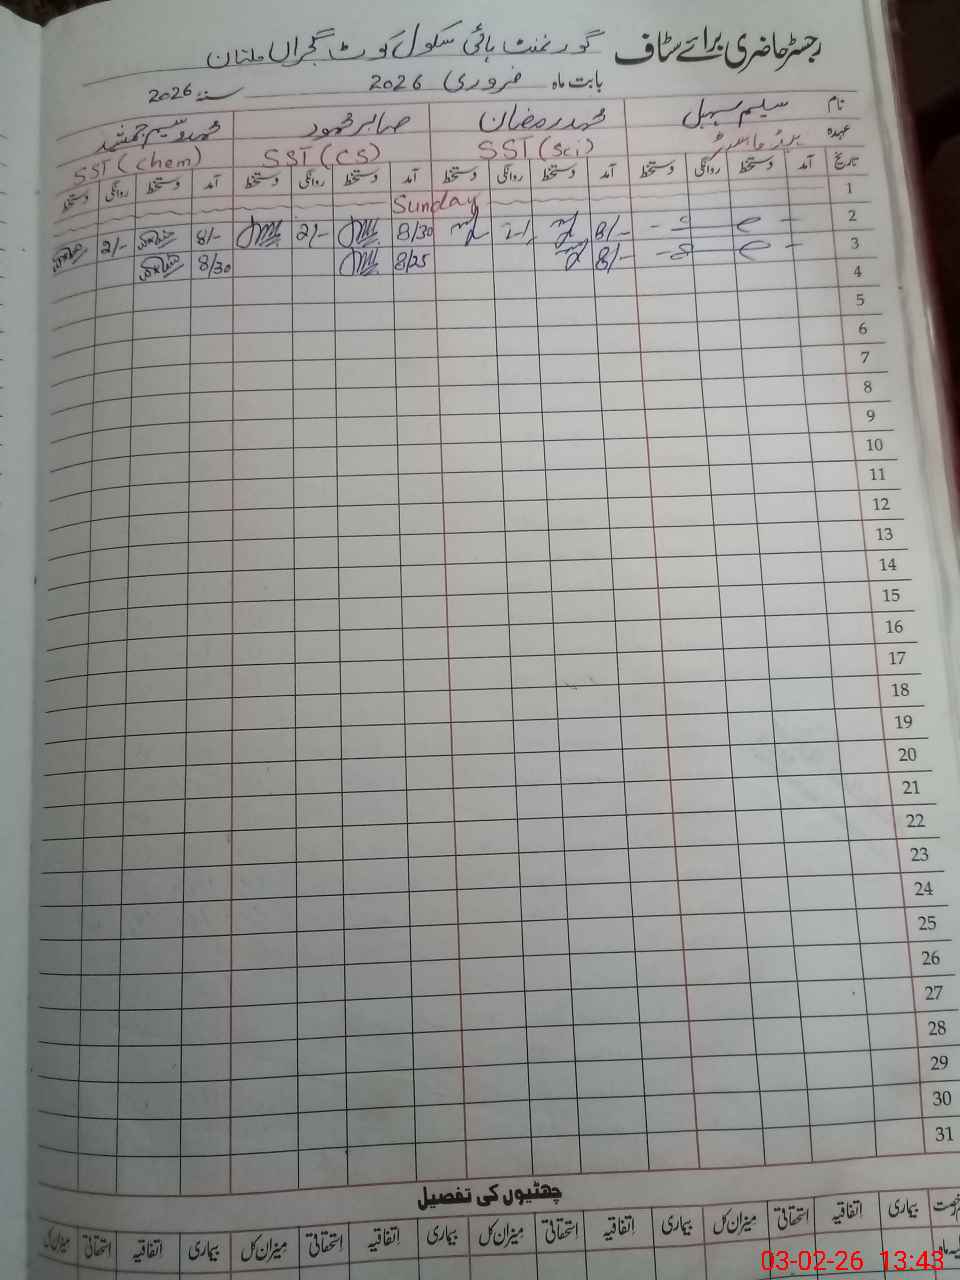 رجسٹر حاضری برائے سٹاف گورنمنٹ ہائی سکول کوٹ گجراں ملتان
بابت ماہ فروری 2026 سنہ 2026
نام سلیم سہیل محمد رمضان صابر محمود محمد وسیم جمشید
عہدہ ہیڈ ماسٹر SST (Sci) SST (CS) SST (Chem)
تاریخ آمد دستخط روانگی دستخط آمد دستخط روانگی دستخط آمد دستخط روانگی دستخط آمد دستخط روانگی دستخط
1 Sunday
2 8/- 2/- 8/30 2/- 8/- 2/-
3 8/- 8/25 8/30
4
5
6
7
8
9
10
11
12
13
14
15
16
17
18
19
20
21
22
23
24
25
26
27
28
29
30
31
چھٹیوں کی تفصیل
بیماری اتفاقیہ استحقاقی میزان کل بیماری اتفاقیہ استحقاقی میزان کل بیماری اتفاقیہ استحقاقی میزان کل بیماری اتفاقیہ استحقاقی میزان کل
03-02-26 13:43